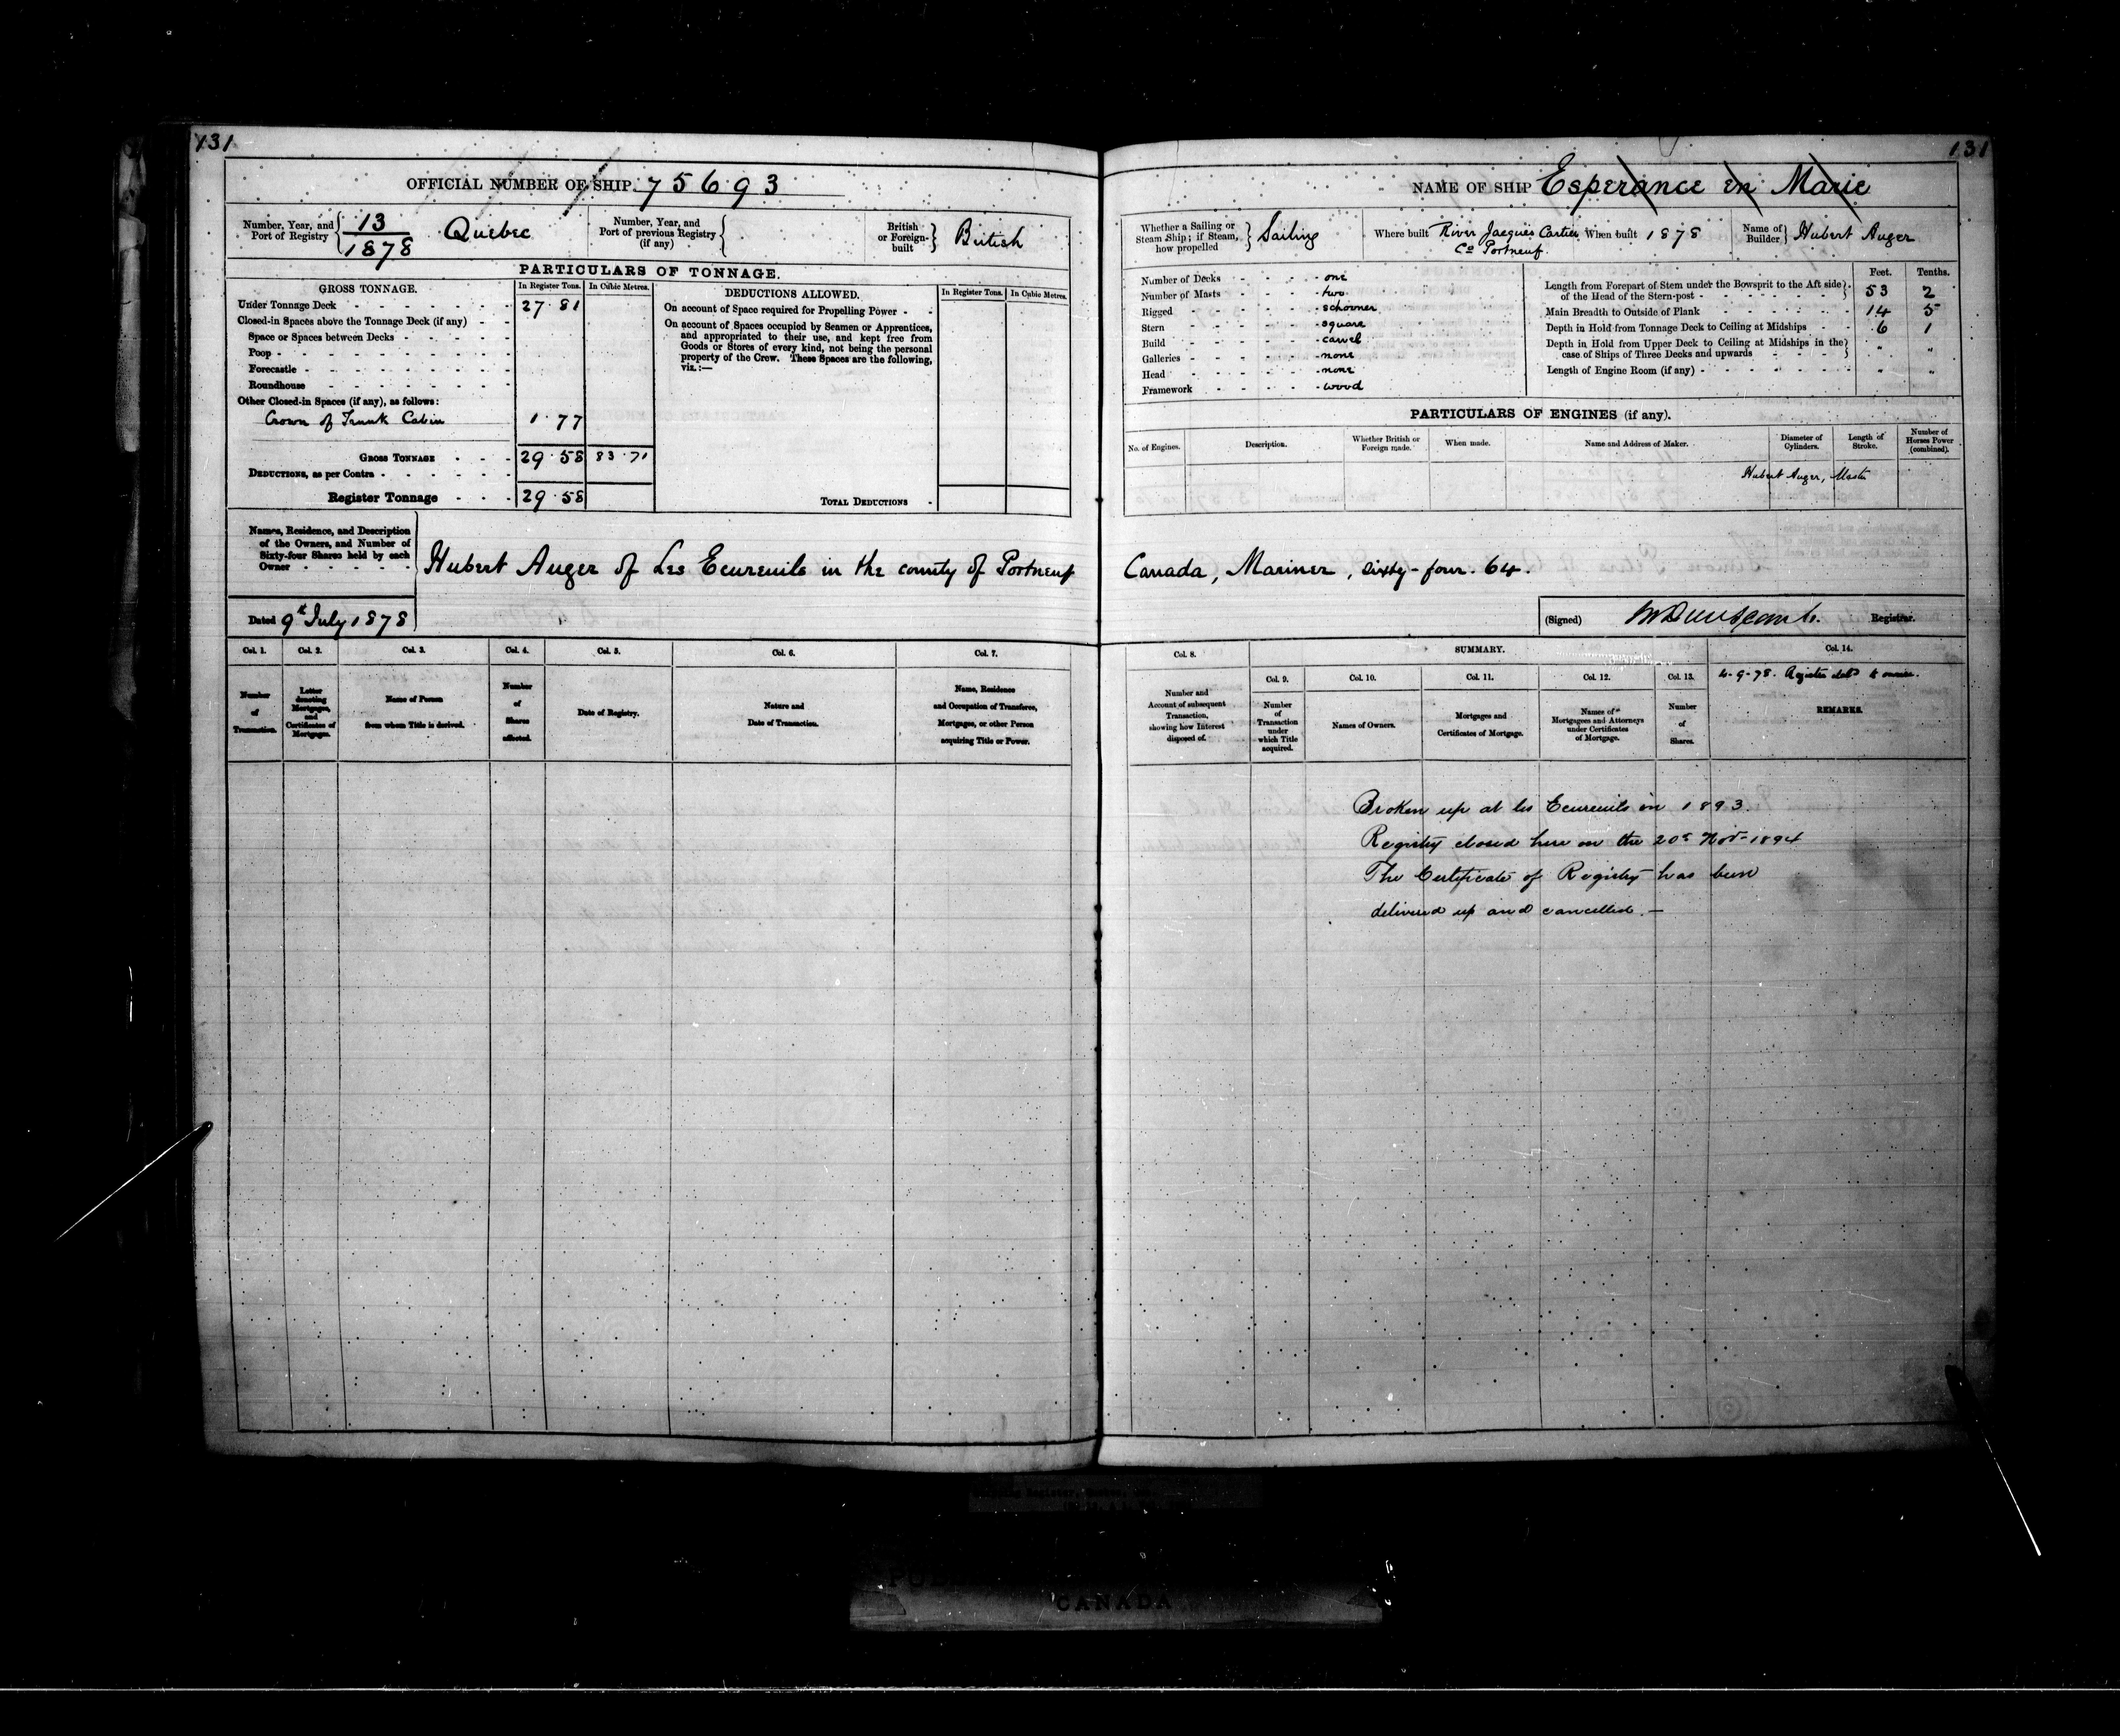 131
OFFICIAL NUMBER OF SHIP 75693
Number, Year, and Port of Registry { 13/1878 Quebec
Number, Year, and Port of previous Registry (if any) {
British or Foreign-built } British
PARTICULARS OF TONNAGE.
GROSS TONNAGE. In Register Tons. In Cubic Metres.
Under Tonnage Deck - - - 27.81
Closed-in Spaces above the Tonnage Deck (if any) - -
Space or Spaces between Decks - - -
Poop - - -
Forecastle - - -
Roundhouse - - -
Other Closed-in Spaces (if any), as follows:
Crown of Trunk Cabin 1.77
GROSS TONNAGE - - - 29.58 83.71
DEDUCTIONS, as per Contra - - -
Register Tonnage - - - 29.58
DEDUCTIONS ALLOWED. In Register Tons. In Cubic Metres.
On account of Space required for Propelling Power - -
On account of Spaces occupied by Seamen or Apprentices,
and appropriated to their use, and kept free from
Goods or Stores of every kind, not being the personal
property of the Crew. These Spaces are the following,
viz.:—
TOTAL DEDUCTIONS -
Names, Residence, and Description
of the Owners, and Number of
Sixty-four Shares held by each
Owner - - - - -
Hubert Auger of Les Ecureuils in the county of Portneuf
Dated 9th July 1878
Col. 1. Col. 2. Col. 3. Col. 4. Col. 5. Col. 6. Col. 7.
Number of Transaction.
Letter denoting Mortgages, and Certificates of Mortgages.
Name of Person from whom Title is derived.
Number of Shares affected.
Date of Registry.
Nature and Date of Transaction.
Name, Residence and Occupation of Transferee, Mortgagee, or other Person acquiring Title or Power.
131
NAME OF SHIP Esperance en Marie
Whether a Sailing or Steam Ship; if Steam, how propelled } Sailing
Where built River Jacques Cartier Co Portneuf
When built 1878
Name of Builder } Hubert Auger
Number of Decks - - - one
Number of Masts - - - two
Rigged - - - schooner
Stern - - - square
Build - - - carvel
Galleries - - - none
Head - - - none
Framework - - - wood
Feet. Tenths.
Length from Forepart of Stem under the Bowsprit to the Aft side of the Head of the Stern-post - 53 2
Main Breadth to Outside of Plank - 14 5
Depth in Hold from Tonnage Deck to Ceiling at Midships - 6 1
Depth in Hold from Upper Deck to Ceiling at Midships in the case of Ships of Three Decks and upwards - " "
Length of Engine Room (if any) - " "
PARTICULARS OF ENGINES (if any).
No. of Engines. Description. Whether British or Foreign made. When made. Name and Address of Maker. Diameter of Cylinders. Length of Stroke. Number of Horses Power (combined).
Hubert Auger, Master
Canada, Mariner, sixty-four. 64.
(Signed) Registrar.
Col. 8. SUMMARY. Col. 14.
Col. 9. Col. 10. Col. 11. Col. 12. Col. 13.
4-9-78. Register to owner.
Number and Account of subsequent Transaction, showing how Interest disposed of.
Number of Transaction under which Title acquired.
Names of Owners.
Mortgages and Certificates of Mortgage.
Names of Mortgagees and Attorneys under Certificates of Mortgage.
Number of Shares.
REMARKS.
Broken up at les Ecureuils in 1893.
Registry closed here on the 20th Nov. 1894
The Certificate of Registry has been
delivered up and cancelled. —
CANADA